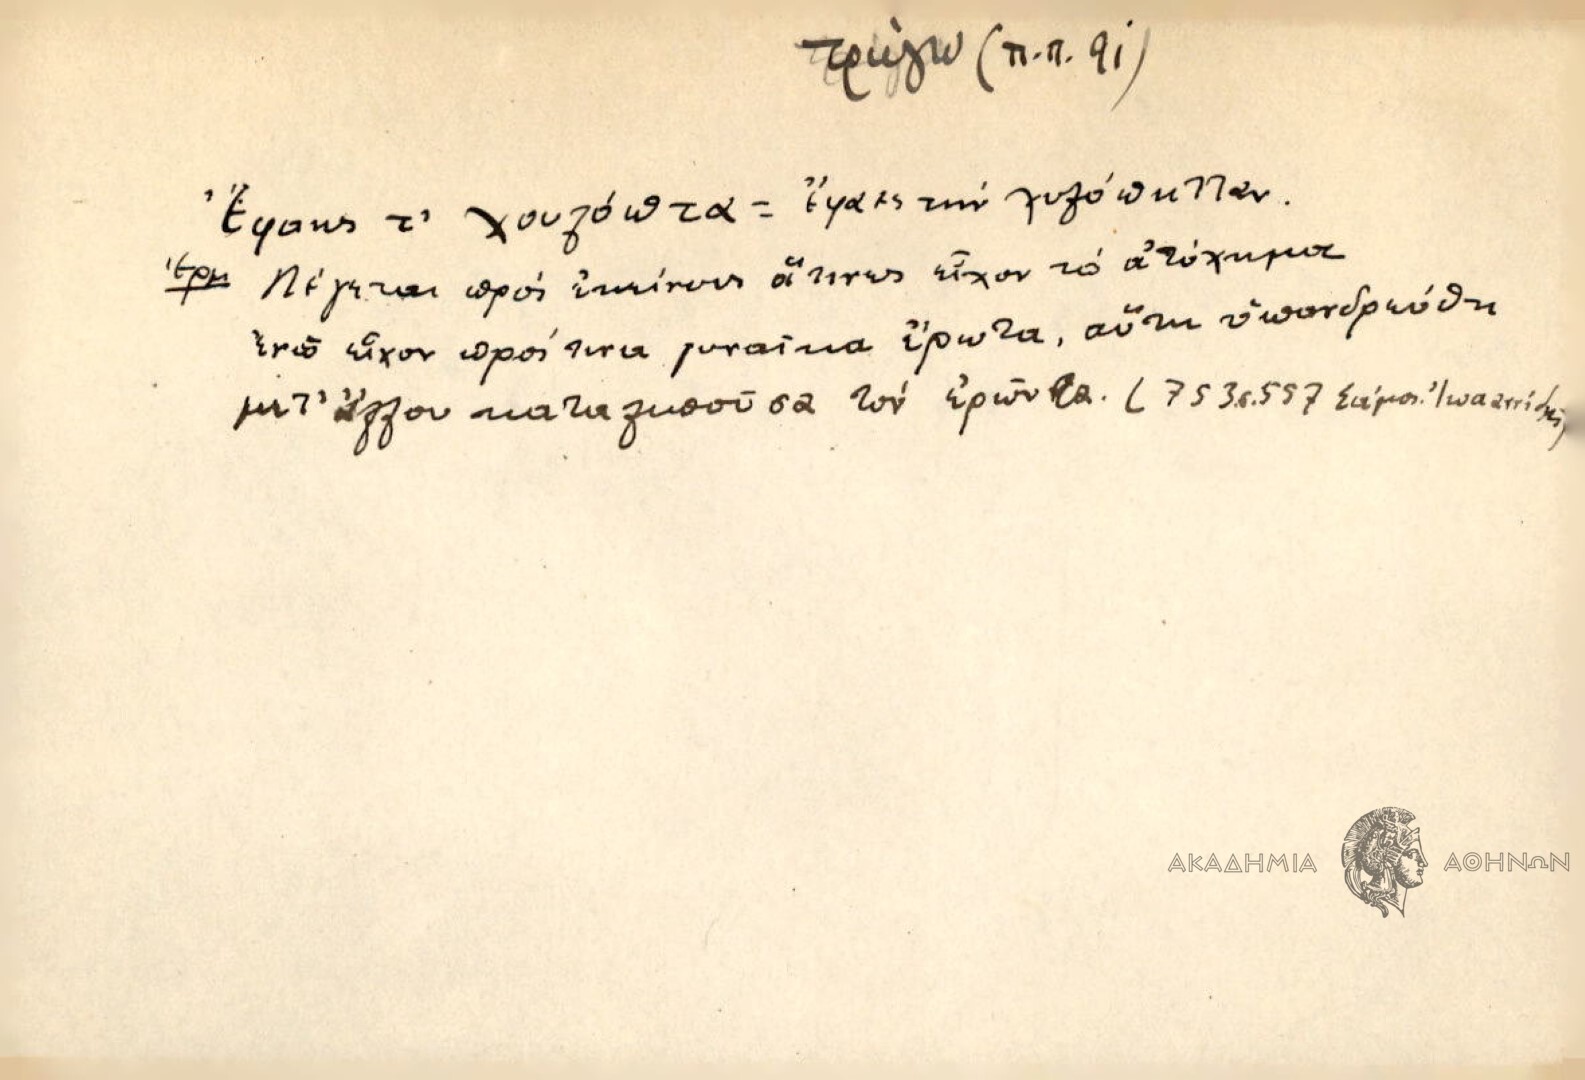 τρώγω (π.π. 91)
Ἔφαες τ' χουλόπτα = Ἔφαες τὴν χυλόπητταν.
Ἑρμ Λέγεται πρὸς ἐκείνους οἵτινες εἶχον τὸ ἀτύχημα
ἐνῶ εἶχον πρός τινα γυναῖκα ἔρωτα, αὕτη ὑπανδρεύθη
μετ' ἄλλου καταλιποῦσα τὸν ἐρῶντα. (753 σ. 557 Σάμος. Ἰωαννίδης)
ΑΚΑΔΗΜΙΑ ΑΘΗΝΩΝ